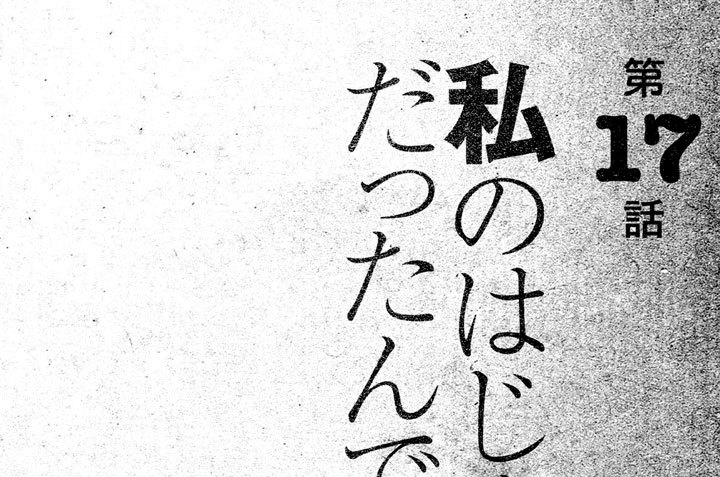 第17話
私のはじ
だったんで